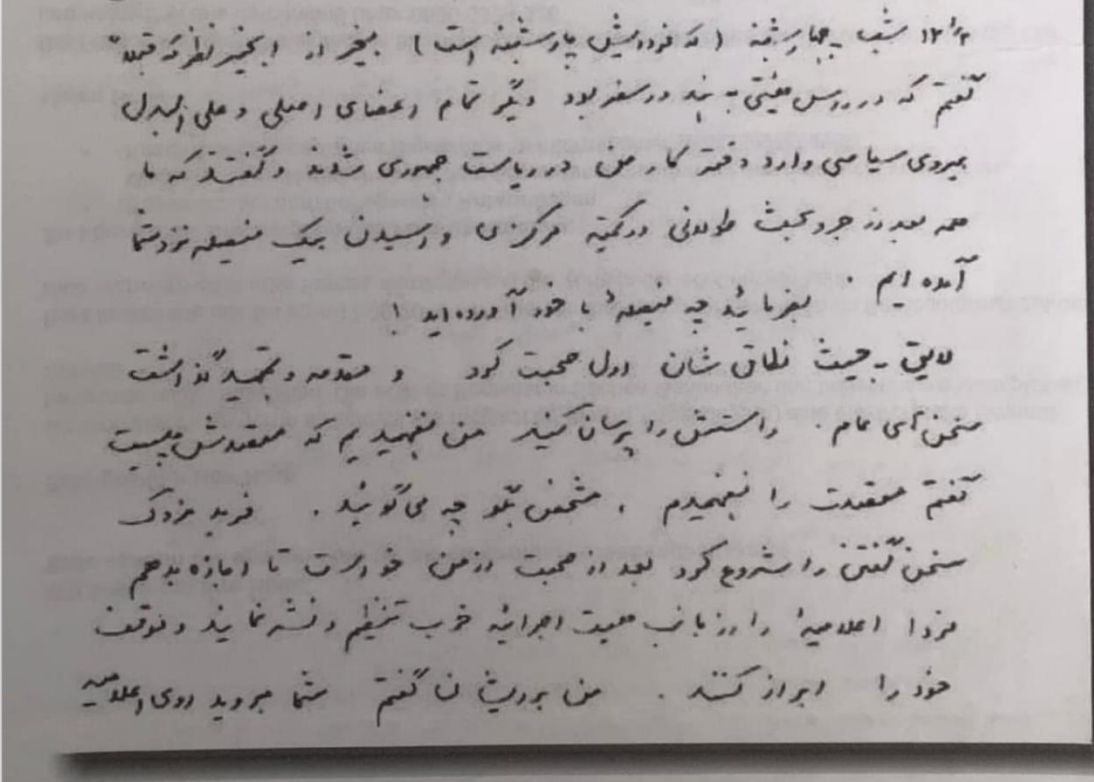 شب چهارشنبه (که فردایش چارشنبه است) بغیر از انجنیر نظر که قبلاً
گفتم که در رأس هیئتی به در سفر بود دیگر تمام اعضای اصلی و علی البدل
بیروی سیاسی وارد دفتر کار من در ریاست جمهوری شدند و گفتند که ما
همه بعد از جر و بحث طولانی در کمیته مرکزی و رسیدن بیک فیصله نزد شما
آمده ایم . بفرمائید چه فیصلهٔ با خود آورده اید !
لایق بحیث نطاق شان اول صحبت کرد و مقدمه و تمهید گذاشت
سخن های تمام . راستش را پرسان کنید من نفهمیدیم که مقصدش چیست
گفتم مقصدت را نفهمیدم . مشخص بگو چه می گوئید . فرید مزدک
سخن گفتن را شروع کرد بعد از صحبت از من خواست تا اجازه بدهم
فردا اعلامیهٔ را از زبان هیئت اجرائیه حزب تنظیم و نشر نمایند و موقف
خود را ابراز کنند . من برایشان گفتم شما بروید روی اعلامیه